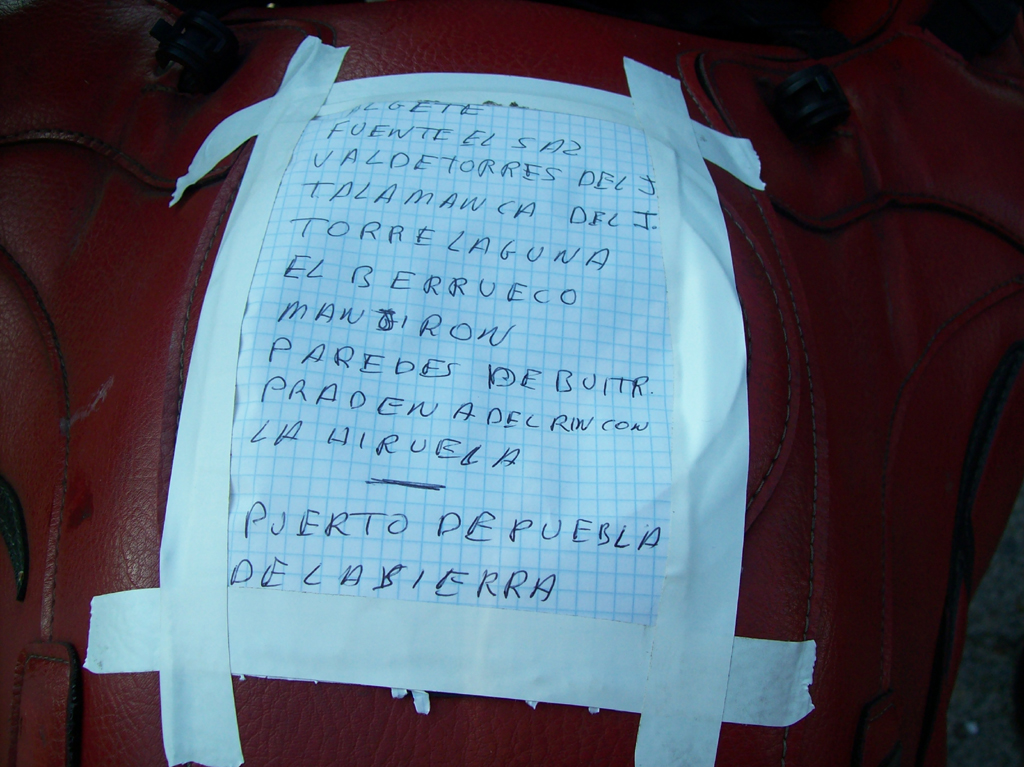 ALGETE
FUENTE EL SAZ
VALDETORRES DEL J
TALAMANCA DEL J.
TORRELAGUNA
EL BERRUECO
MANJIRON
PAREDES DE BUITR.
PRADENA DEL RINCON
LA HIRUELA
PUERTO DE PUEBLA
DE LA SIERRA